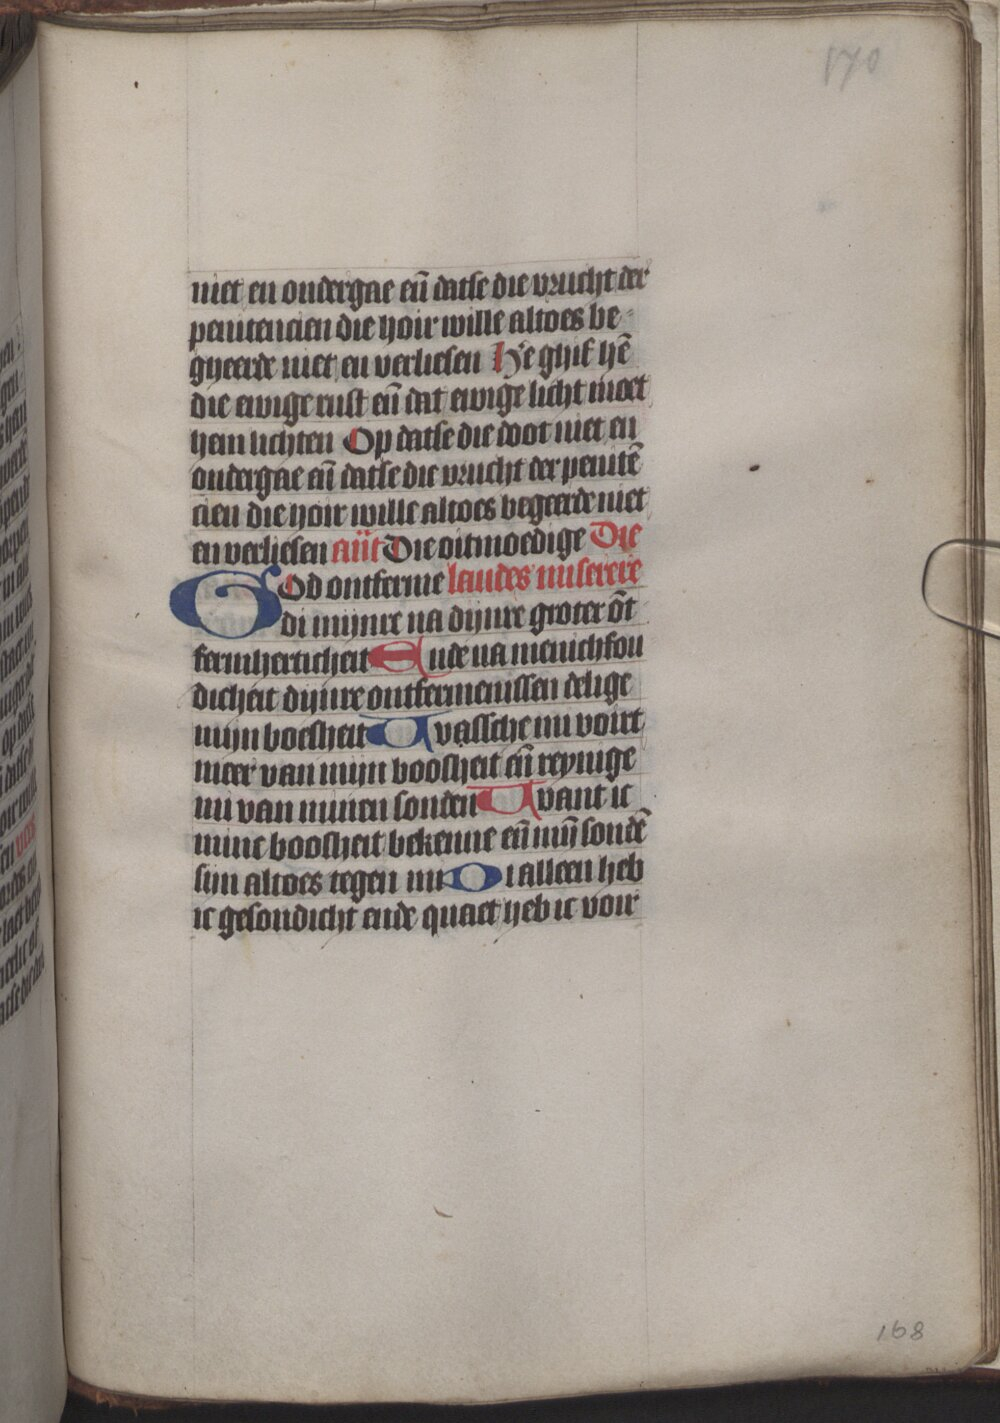 170
niet en ondergae eñ datse die vrucht der
penitencien die hoir wille altoes be-
gheerde niet en verliesen He ghif hē
die ewige rust eñ dat ewige licht moet
hem lichten Op datse die doot niet en
ondergae eñ datse die vrucht der penitē
cien die hoir wille altoes begeerde niet
en verliesen añt Die oitmoedige Die
God ontferme laudes miserere
di mijnre na dijnre groter ōt
fermherticheit Ende na menichfou
dicheit dijnre ontfermenissen delige
mijn boesheit Wassche mi voirt
meer van mijn boosheit eñ reynige
mi van minen sonden Want ic
mine boosheit bekenne eñ mijn sondē
sijn altoes tegen mi Di alleen heb
ic gesondicht ende quaet heb ic voir
168